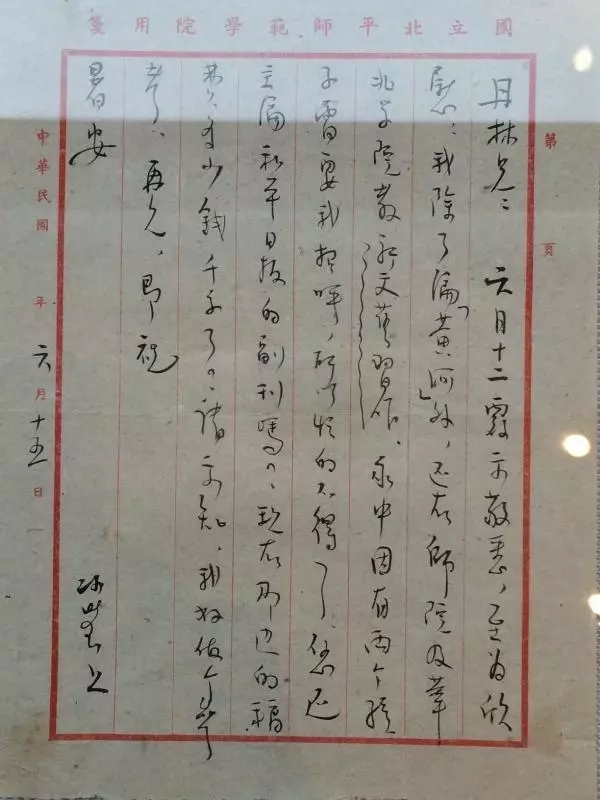 國立北平師範學院用箋
第 頁
丹林兄：六月十二覆示敬悉，至为欣
慰，我除了编「黄河」外，还在師院及華
北学院教新文艺習作，家中因有两个孩
子需要我招呼，所以忙的不得了，您还
主编和平日报的副刊嗎？现在那边的稿
费多少錢千字了？请示知，我好做个参
考，再见，即祝
暑安
冰莹上
中華民國 年六月十五日